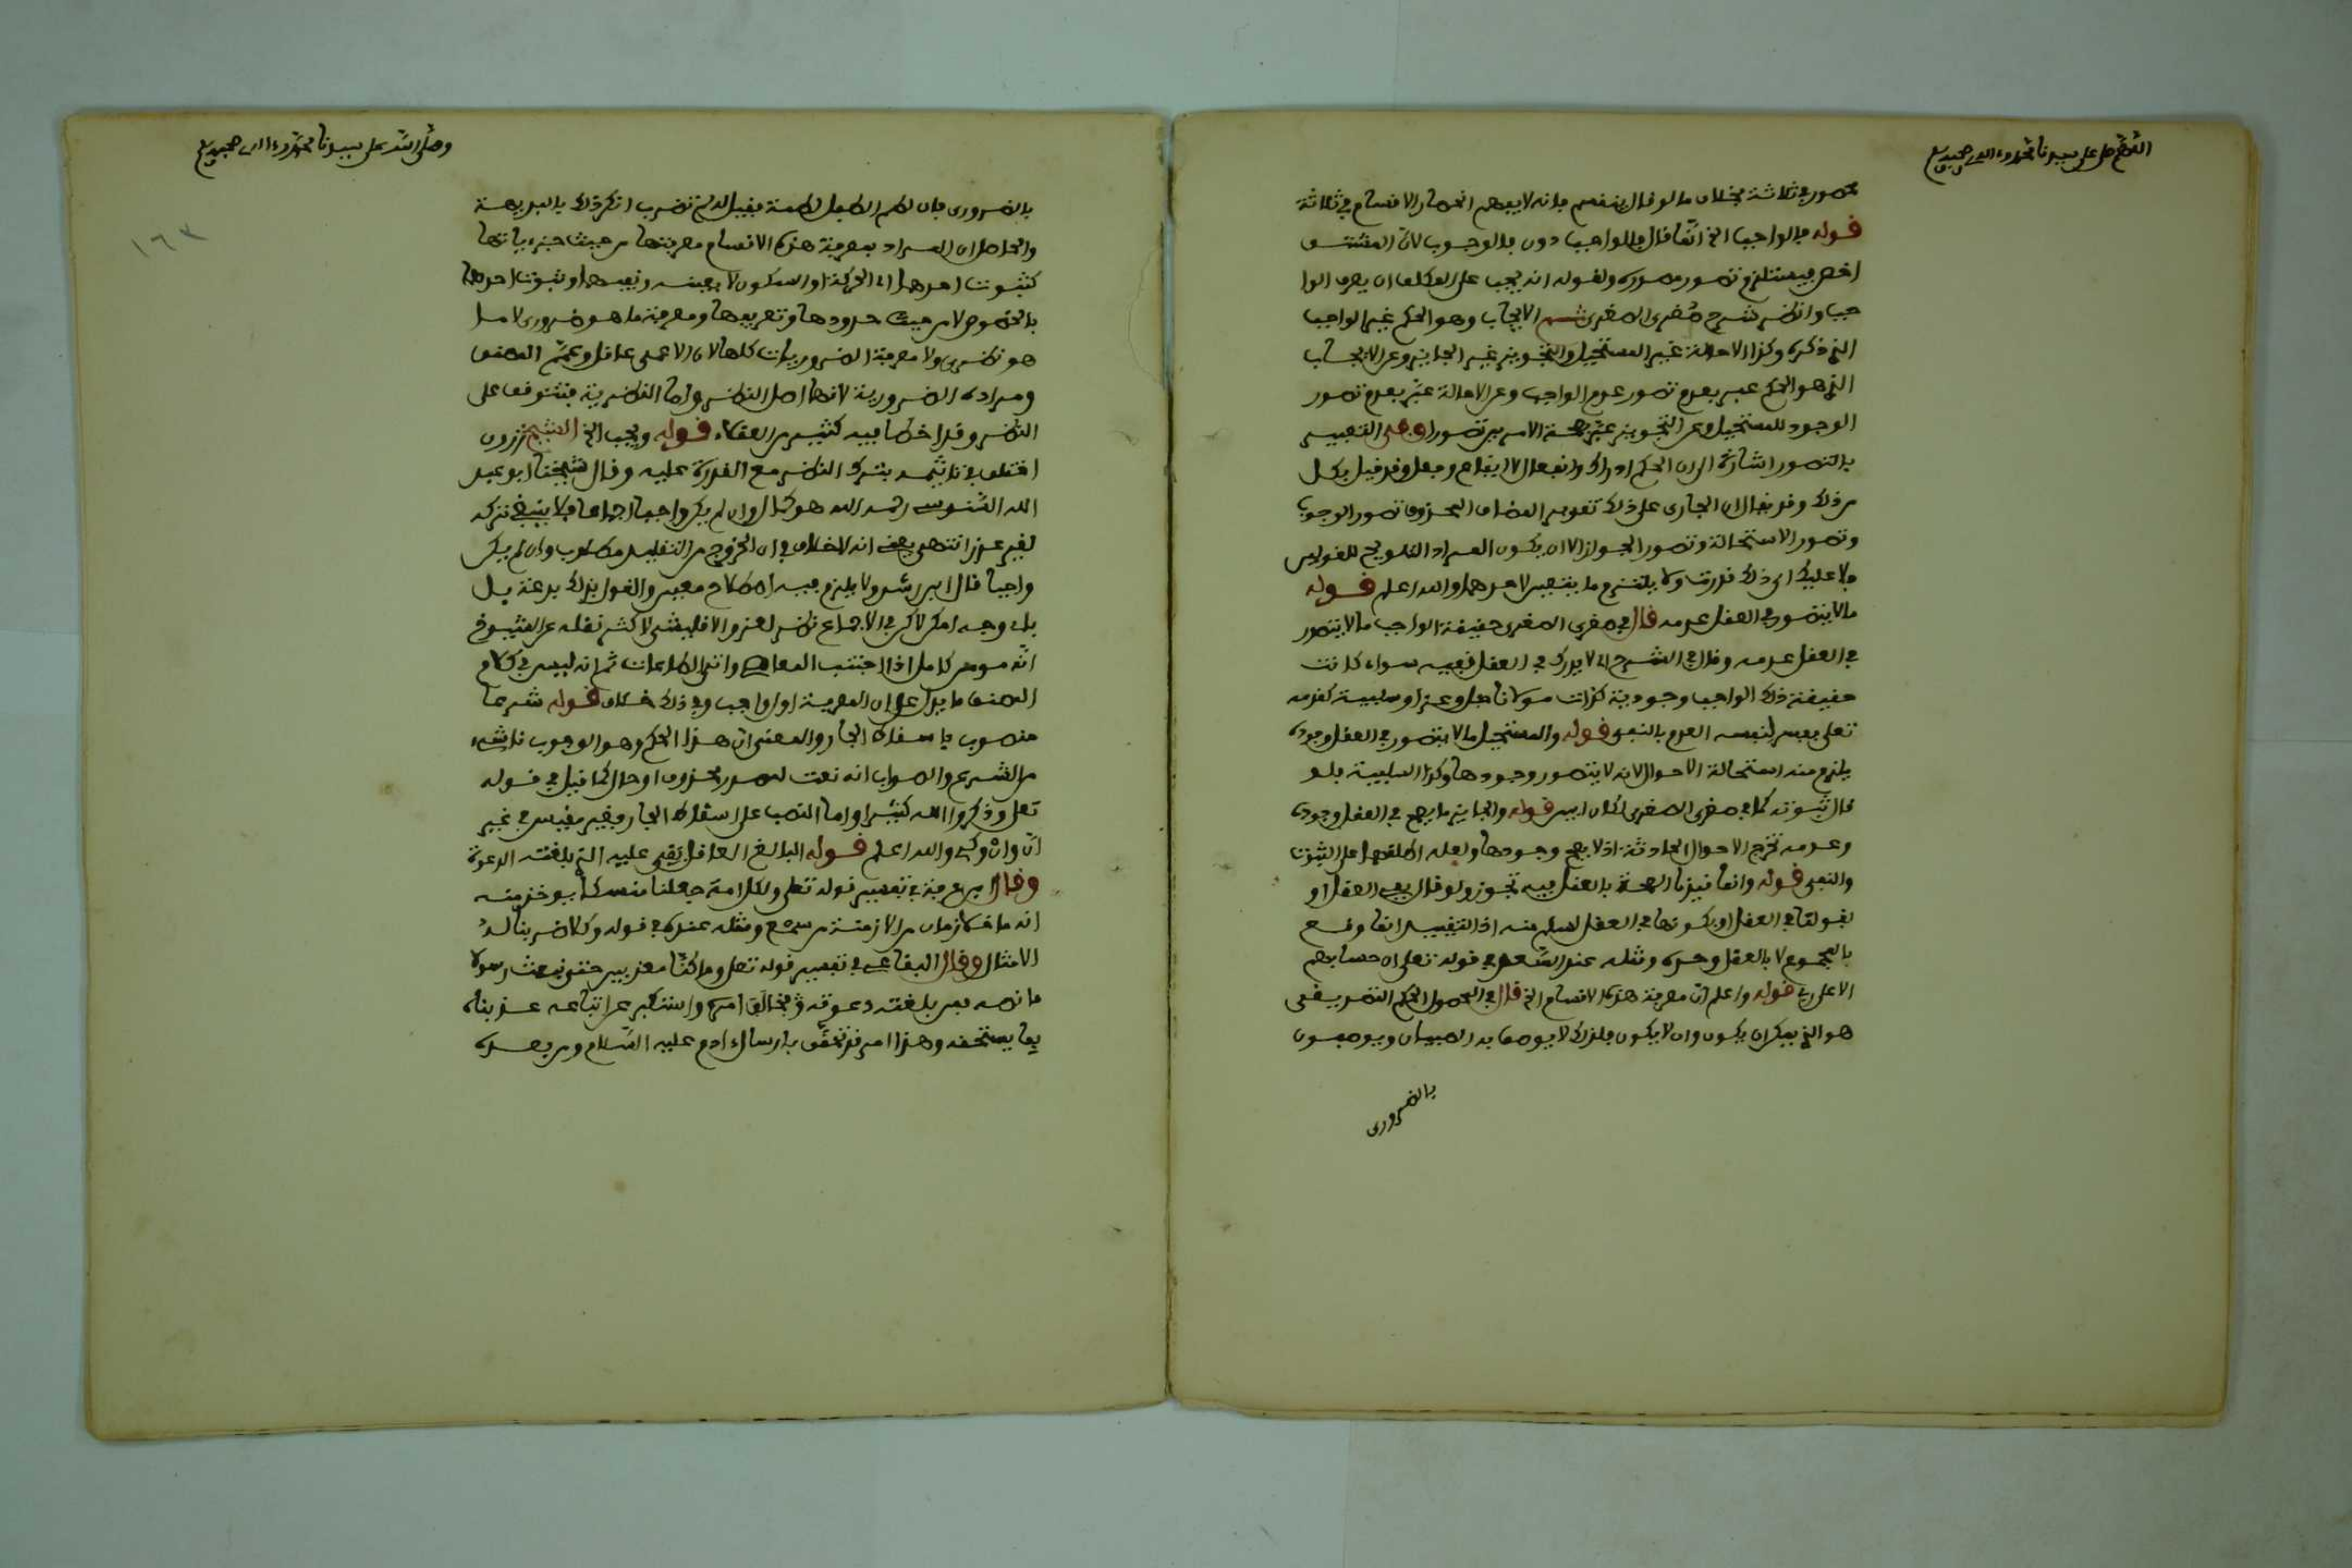 اللهم صل على سيدنا محمد وءاله وصحبه وسلم
محصور في ثلاثة بخلاف ما لو قال ينقسم فإنه لا يفهم انحصار الاقسام في ثلاثة
قوله فالواجب الخ انما قال فالواجب دون فالوجوب لان المشتق
اخص فيستلزم تصوره تصوره ولقوله انه يجب على المكلف ان يعرف الوا
جب وانظر شرح صغرى الصغرى الايجاب وهو الحكم غير الواجب
الذي ذكره وكذا الاحالة غير المستحيل والتجويز غير الجايز وعن الايجاب
الذي هو الحكم عبر بعدم تصور عدم الواجب وعن الاحالة عبر بعدم تصور
الوجود للمستحيل وعن التجويز عبر بصحة الامرين تصورا وفي التعبير
بالتصور اشارة الى ان الحكم ادراك وانفعال لا ايقاع وفعل وقد قيل بكل
من ذلك وقد يقال ان الجاري على ذلك تقويم المضاف المحذوف تصور الوجوب
وتصور الاستحالة وتصور الجواز الا ان يكون المراد التلويح للقولين
ولا عليك اي ذلك قدرت ولا يلتزم ما يتعين لاحدهما والله اعلم قوله
ما لا يتصور في العقل عدمه قال في صغرى الصغرى حقيقة الواجب ما لا يتصور
في العقل عدمه وقال في الشرح اي لا يدرك في العقل نفيه سواء كانت
حقيقة ذلك الواجب وجودية كذات مولانا جل وعز او سلبية كقدمه
تعلى يفسر لنفسه العدم بالنفي قوله والمستحيل ما لا يتصور في العقل وجوده
يلزم منه استحالة الاحوال لانه لا يتصور وجودها وكذا السلبية فلو
قال ثبوته كما في صغرى الصغرى لكان ابين قوله والجايز ما يصح في العقل وجوده
وعدمه تخرج الاحوال الحادثة اذ لا يصح وجودها ولعله اطلقها على الثبوت
والنفي قوله وانما قيدنا الصحة بالعقل فيه تجوز ولو قال بفي العقل او
بقولنا في العقل او بكونها في العقل لسلم منه اذ التقييد انما وقع
بالمجموع لا بالعقل وحده ومثله عند السعد في قوله تعلى ان حسابهم
الا على ربي قوله واعلم ان معرفة هذه الاقسام الخ قال في المحصول الحكم النظر يقضي
هو الذي يمكن ان يكون وان لا يكون ولذلك لا يوصف به الصبيان ويوصفون
بالضروري
وصلى الله على سيدنا محمد وءاله وصحبه وسلم
١٦٣
بالضروري فان لطم الطفل لطمة فقيل له لم تضرب انكر ذلك بالبديهة
والحاصل ان المراد بمعرفة هذه الاقسام معرفتها من حيث جزءياتها
كثبوت احدهما اي الحركة او السكون لا بعينه ونفيهما او ثبوت احدهما
بالخصوص لا من حيث حدودها وتعريفها ومعرفة ما هو ضروري لا ما
هو نظري ولا معرفة الضروريات كلها لان لا عمى عاقل وعم المصنف
ومراده الضرورية لانها اصل النظر واما النظرية فتتوقف على
النظر وقد اخطا فيه كثير من العقلاء قوله ويجب الخ الشيخ زروق
اختلف في تاثيمه بترك النظر مع القدرة عليه وقال شيخنا ابو عبد
الله السنوسي رحمه الله هو كمال وان لم يكن واجبا اجماعا ولا ينبغي تركه
لغير عذر انتهى يعني انه لا خلاف في ان الخروج من التقليد مطلوب وان لم يكن
واجبا قال ابن رشد ولا يلزم فيه اصطلاح معين والقول بذلك بدعة بل
باي وجه امكن لاكن في الاجماع نظر لعزو الاقليشي لاكثر نقله عن الشيوخ
انه مومن كامل اذا اجتنب المعاصي واتى الطاعات ثم انه ليس في كلام
المصنف ما يدل على ان المعرفة اول واجب وفي ذلك خلاف قوله شرعا
منصوب باسقاط الجار والمعنى ان هذا الحكم وهو الوجوب ناشيء
من الشرع والصواب انه نعت لمصدر محذوف او حال كما قيل في قوله
تعلى وذكروا الله كثيرا واما النصب على اسقاط الجار فغير مقيس في غير
ان وان وكي والله اعلم قوله البالغ العاقل بقي عليه الذي بلغته الدعوة
وقال ابن عرفة في تفسير قوله تعلى ولكل امة جعلنا منسكا يوخذ منه
انه ما خلا زمان من الازمنة من شرع ومثله عنده في قوله وكلا ضربنا له
الامثال وقال البقاعي في تفسير قوله تعلى وما كنا معذبين حتى نبعث رسولا
ما نصه فمن بلغته دعوته فخالف امره واستكبر عن اتباعه عذبناه
بما يستحقه وهذا امر قد تحقق بارسال ءادم عليه السلام ومن بعده